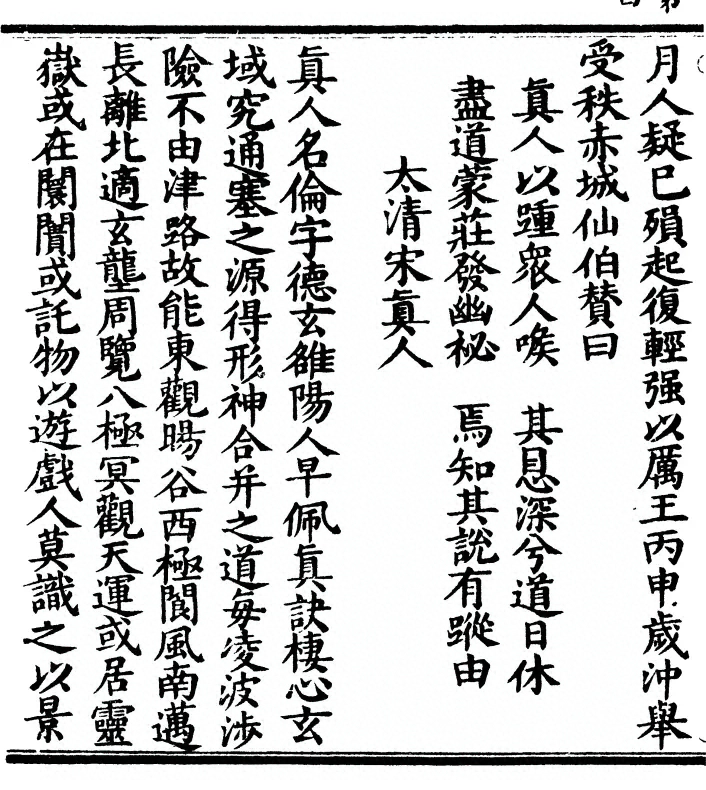 月人疑已殞起復輕强以厲王丙申歲沖舉
受秩赤城仙伯賛曰
眞人以踵衆人喉　其息深兮道日休
盡道蒙莊發幽祕　焉知其說有蹤由
太清宋眞人
眞人名倫字德玄雒陽人早佩眞訣棲心玄
域究通塞之源得形神合并之道毎凌波涉
險不由津路故能東觀暘谷西極閬風南邁
長離北適玄壟周覽八極冥觀天運或居靈
嶽或在闤闠或託物以遊戲人莫識之以景